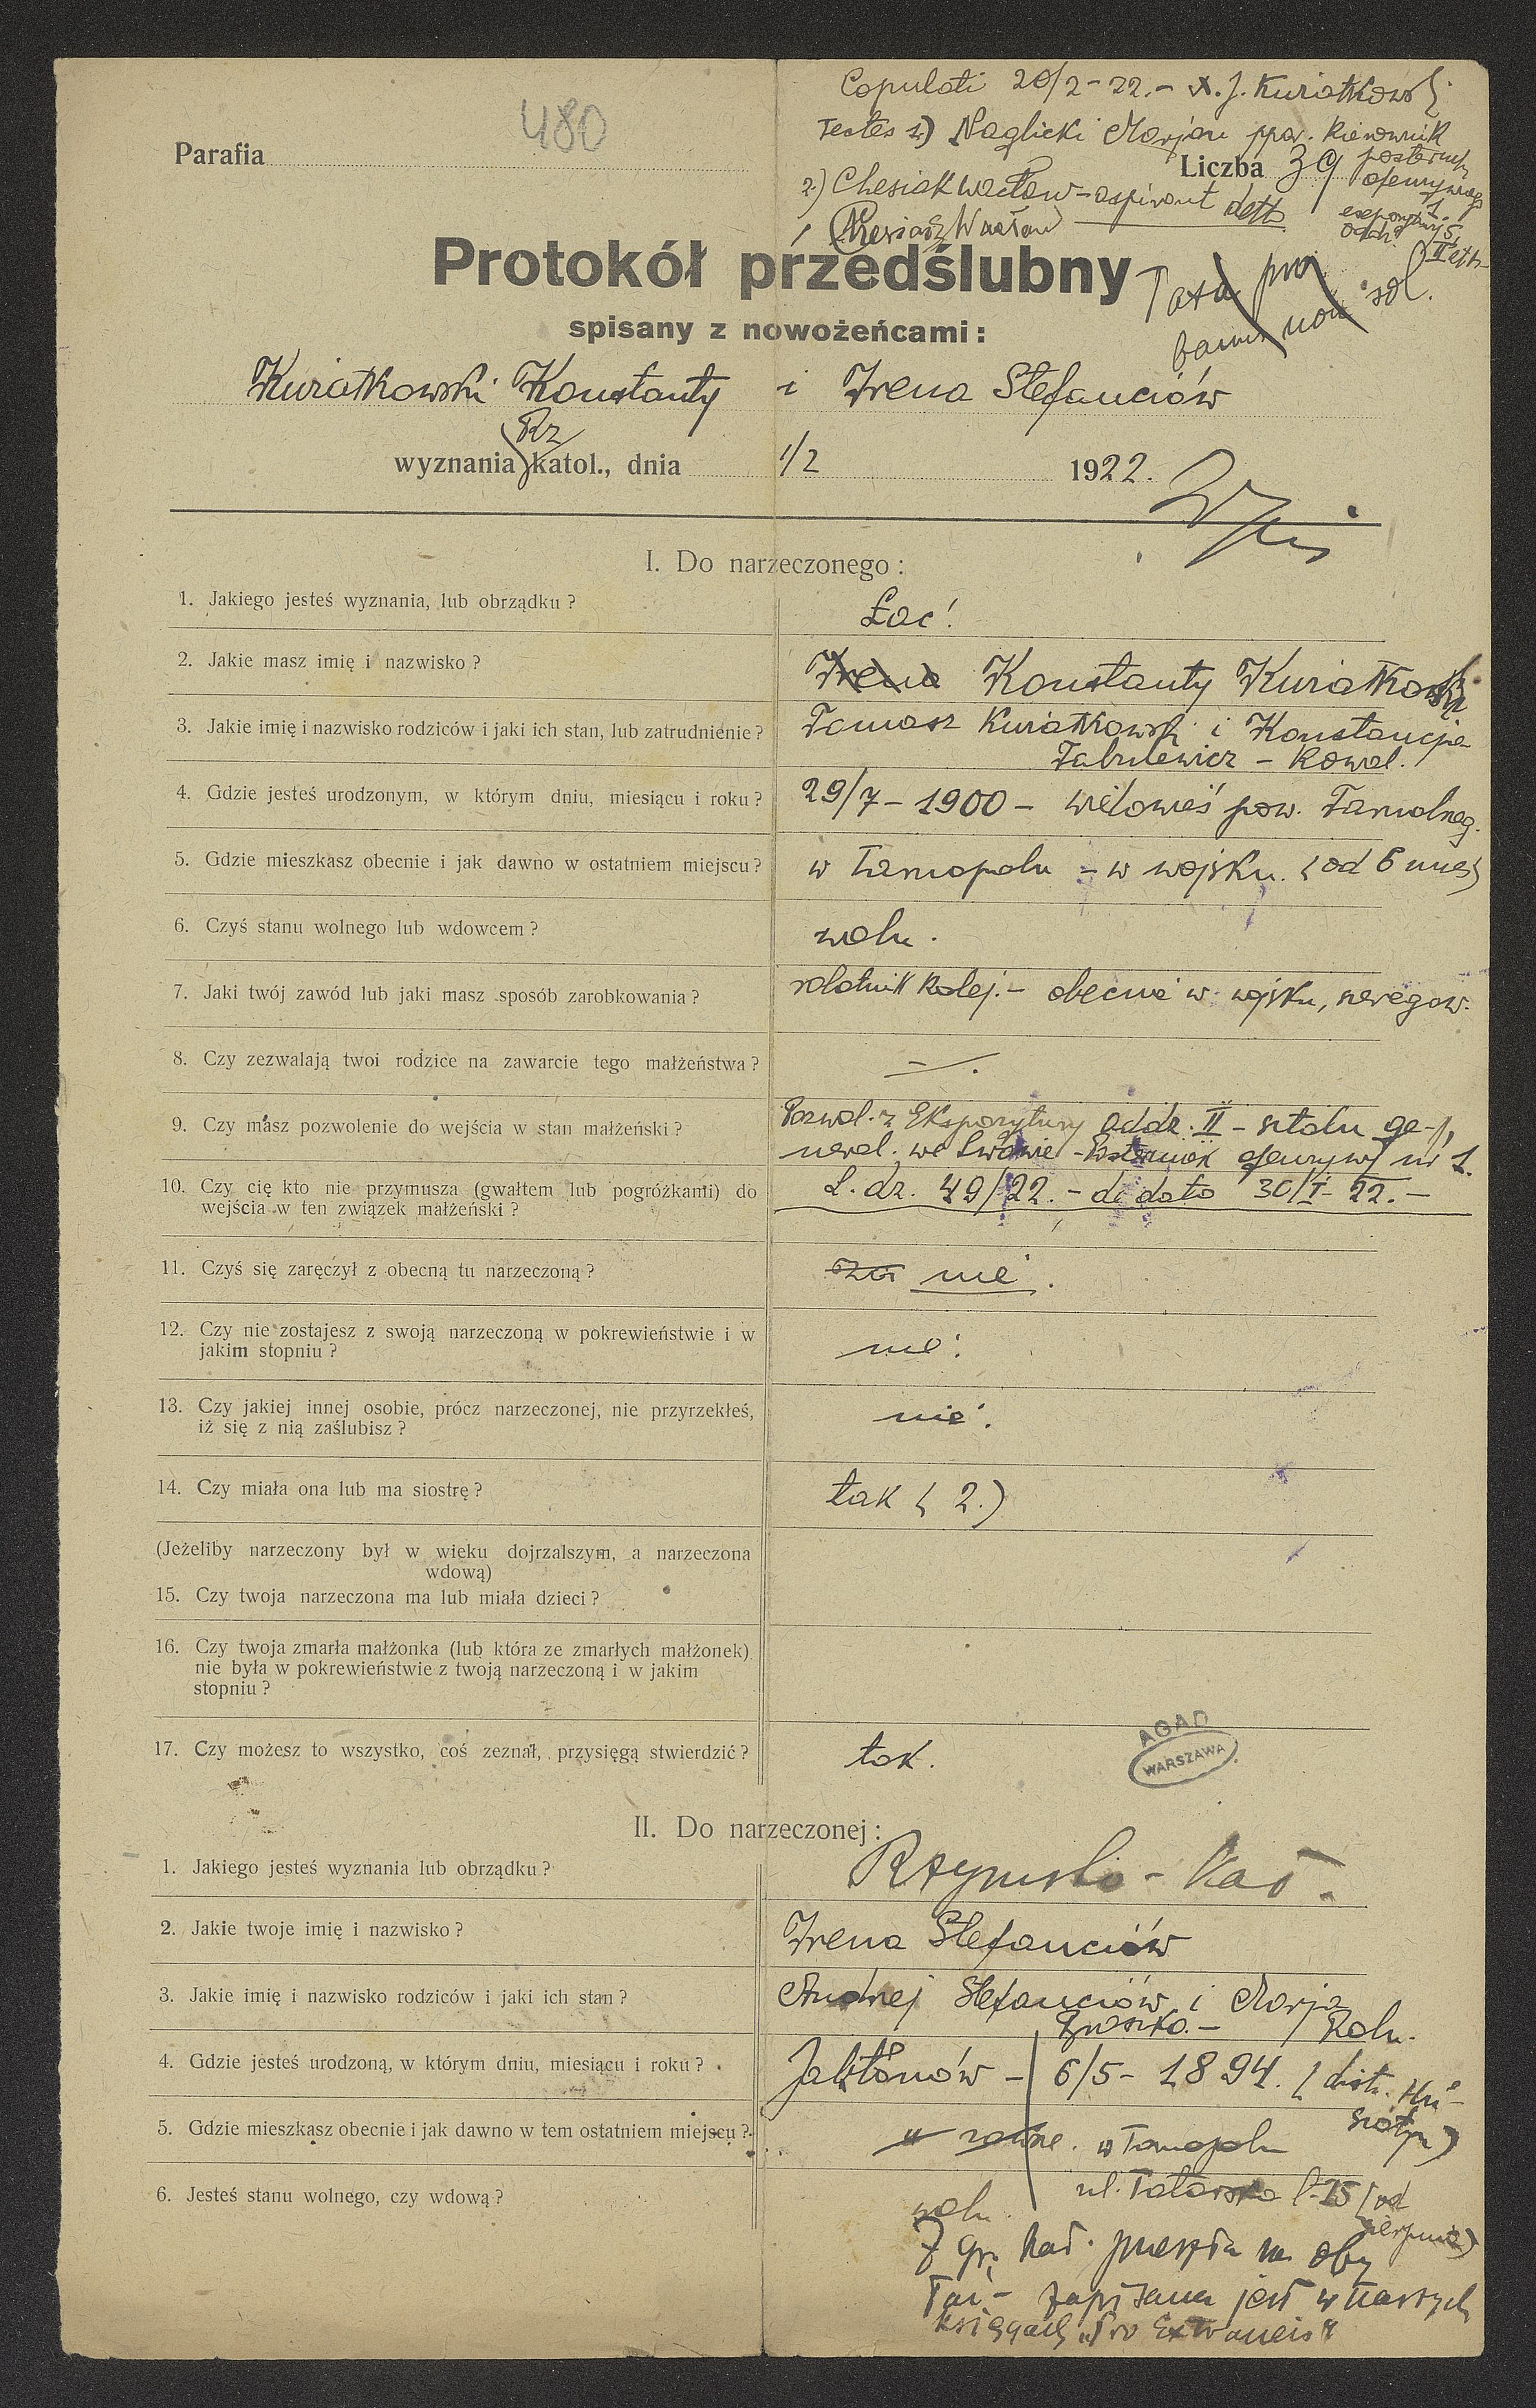 480
Copulati 20/2-22.- X. J. Kuriatkowski
Testes 1.) Naglicki Marjan ppor. Kierownik
Parafia
Liczba 39
posterunku
ofenzywnego
1.
2.) Chesiak Wacław - aspirant detto
Protokół przedślubny
spisany z nowożeńcami:
Kuriatkowski Konstanty i Irena Stefanciów
Rz
wyznania katol., dnia 1/2 1922.
I. Do narzeczonego:
1. Jakiego jesteś wyznania, lub obrządku?
Łac.
2. Jakie masz imię i nazwisko?
Irena Konstanty Kuriatkowski
3. Jakie imię i nazwisko rodziców i jaki ich stan, lub zatrudnienie?
Tomasz Kuriatkowski i Konstancja
- Kowal.
4. Gdzie jesteś urodzonym, w którym dniu, miesiącu i roku?
29/7 - 1900 - Wielowieś pow. Tarnobrzeg.
5. Gdzie mieszkasz obecnie i jak dawno w ostatniem miejscu?
w Tarnopolu - w wojsku. (od 6 mies)
6. Czyś stanu wolnego lub wdowcem?
woln.
7. Jaki twój zawód lub jaki masz sposób zarobkowania?
robotnik kolej. - obecnie w wojsku, szeregow.
8. Czy zezwalają twoi rodzice na zawarcie tego małżeństwa?
-.
9. Czy masz pozwolenie do wejścia w stan małżeński?
Pozwol. z Ekspozytury oddz. II - sztabu ge-
neral. we Lwowie - Posterunek ofenzywy nr 1.
L. dz. 49/22. - de dato 30/I- 22. -
10. Czy cię kto nie przymusza (gwałtem lub pogróżkami) do
wejścia w ten związek małżeński?
11. Czyś się zaręczył z obecną tu narzeczoną?
nie.
12. Czy nie zostajesz z swoją narzeczoną w pokrewieństwie i w
jakim stopniu?
nie.
13. Czy jakiej innej osobie, prócz narzeczonej, nie przyrzekłeś,
iż się z nią zaślubisz?
nie.
14. Czy miała ona lub ma siostrę?
tak ( 2.)
(Jeżeliby narzeczony był w wieku dojrzalszym, a narzeczona
wdową)
15. Czy twoja narzeczona ma lub miała dzieci?
16. Czy twoja zmarła małżonka (lub która ze zmarłych małżonek)
nie była w pokrewieństwie z twoją narzeczoną i w jakim
stopniu?
17. Czy możesz to wszystko, coś zeznał, przysięgą stwierdzić?
tak.
AGAD
WARSZAWA
II. Do narzeczonej:
1. Jakiego jesteś wyznania lub obrządku?
Rzymsko - Kat.
2. Jakie twoje imię i nazwisko?
Irena Stefanciów
3. Jakie imię i nazwisko rodziców i jaki ich stan?
Andrzej Stefanciów i Marja
Roln.
4. Gdzie jesteś urodzoną, w którym dniu, miesiącu i roku?
Jabłonów - 6/5 - 1894. (distr. Hu-
siatyn)
5. Gdzie mieszkasz obecnie i jak dawno w tem ostatniem miejscu?
w Tarnopolu
ul. Tatarska l. 15 (od
sierpnia)
6. Jesteś stanu wolnego, czy wdową?
woln.
Z gr. kat. przeszła na obrz
łac - zapisana jest w naszych
księgach „Pro Extraneis"